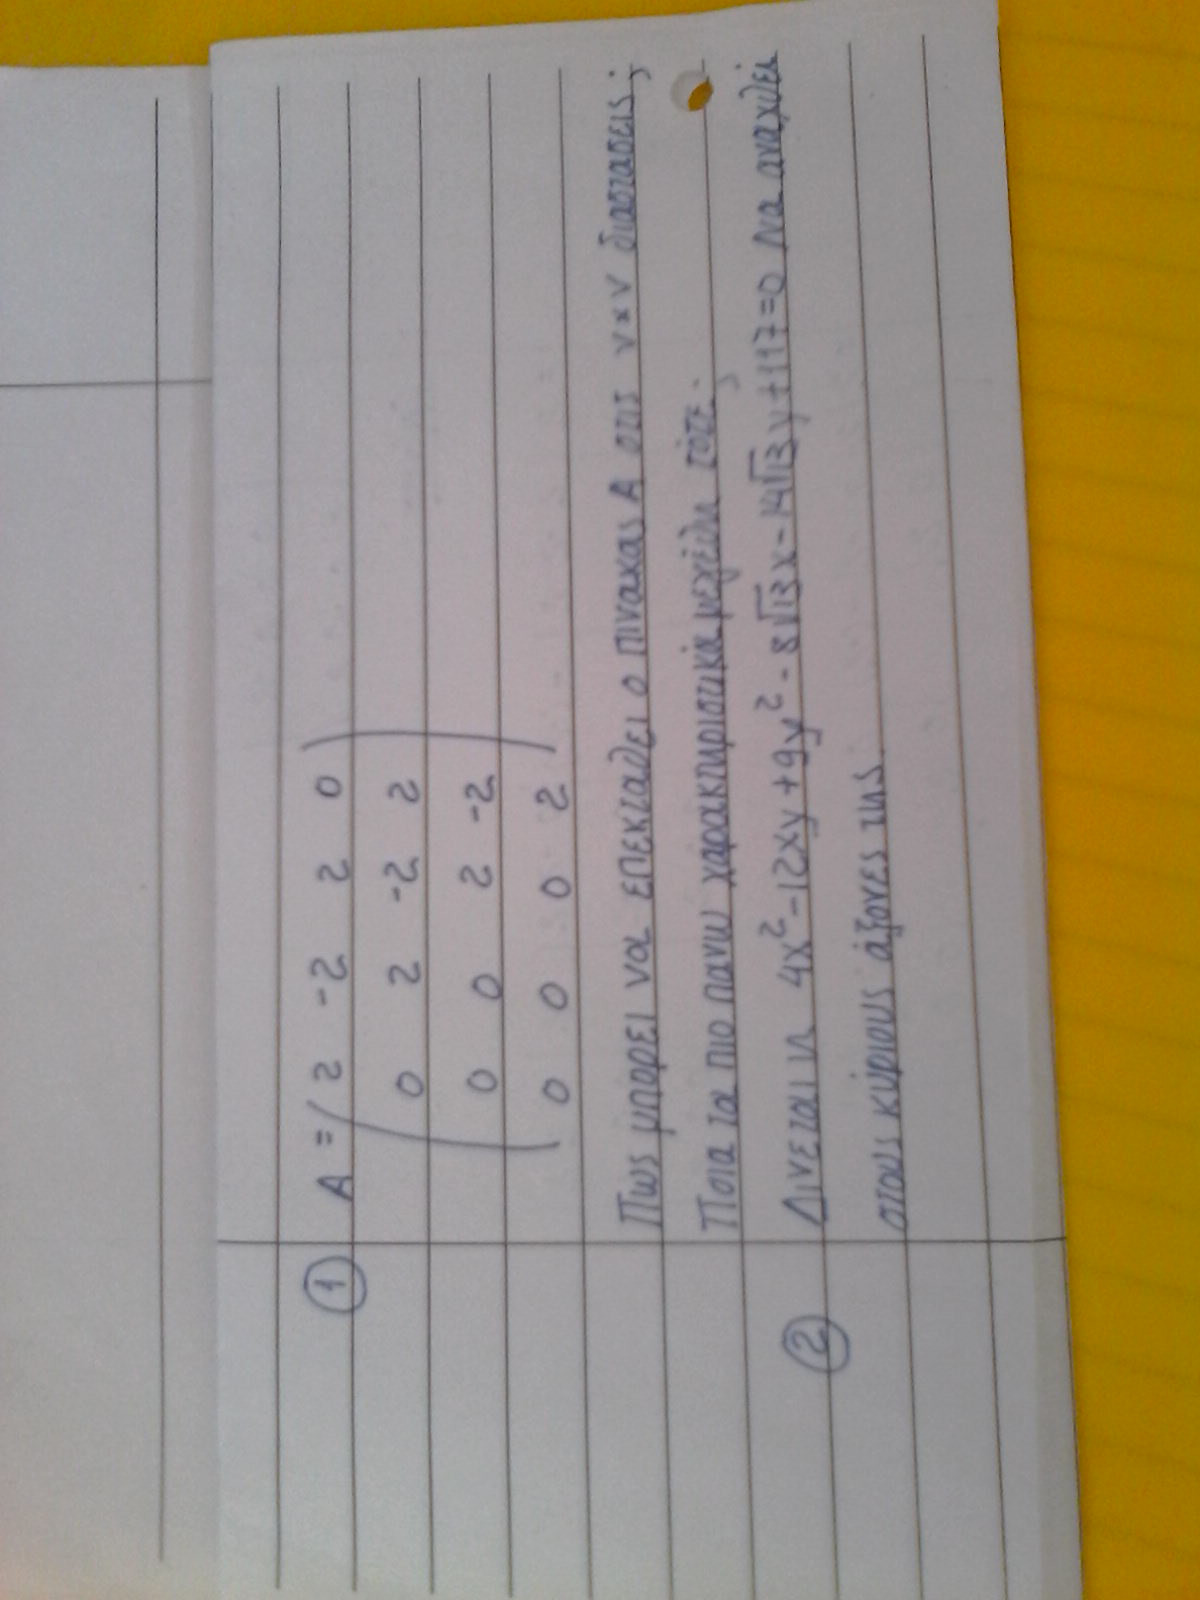 ① A = ( 2 -2 2 0
0 2 -2 2
0 0 2 -2
0 0 0 2 )
Πως μπορει να επεκταθει ο πινακας A στις ν×ν διαστασεις;
Ποια τα πιο πανω χαρακτηριστικά μεγέθη τότε;
② Δινεται η 4x²-12xy+9y²-8√13x-14√13y+117=0 Να αναχθεί
στους κύριους άξονες της